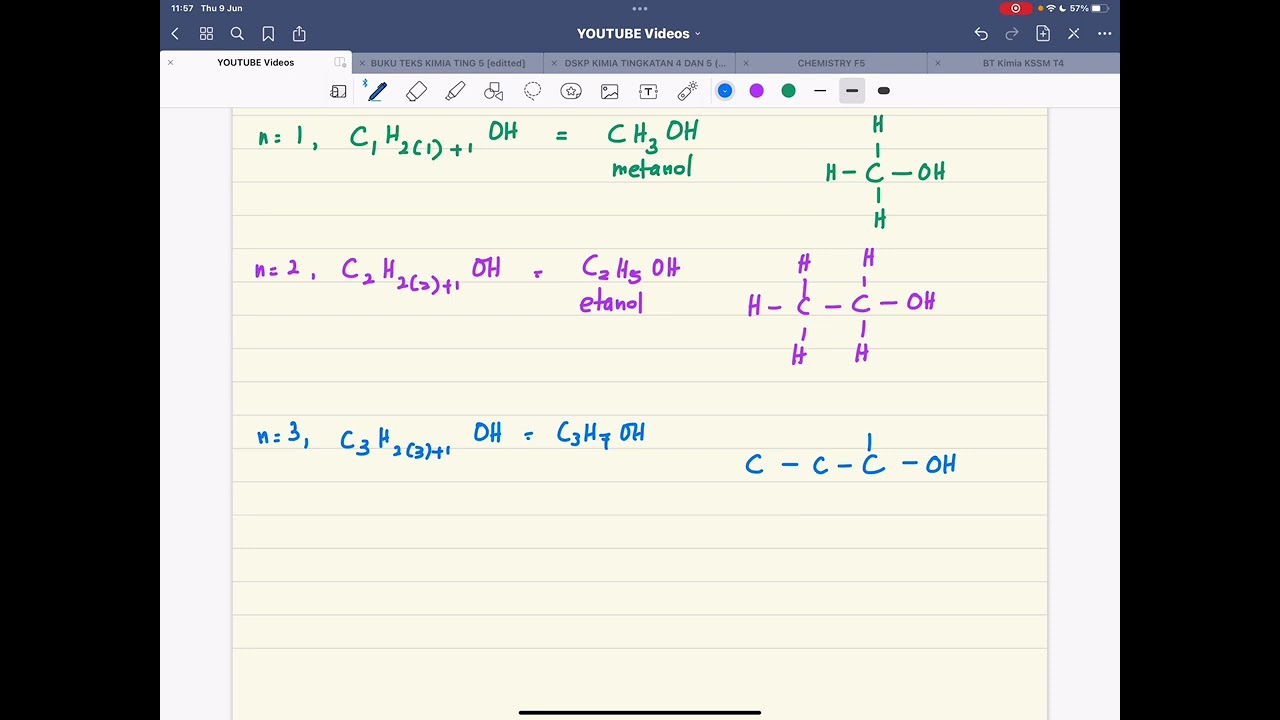 11:57 Thu 9 Jun 57%
YOUTUBE Videos
YOUTUBE Videos BUKU TEKS KIMIA TING 5 [editted] DSKP KIMIA TINGKATAN 4 DAN 5 (... CHEMISTRY F5 BT Kimia KSSM T4
H
n = 1, C₁H₂₍₁₎₊₁ OH = CH₃OH
metanol
H – C – OH
H
H H
n = 2, C₂H₂₍₂₎₊₁ OH = C₂H₅OH
etanol
H – C – C – OH
H H
n = 3, C₃H₂₍₃₎₊₁ OH = C₃H₇OH
C – C – C – OH